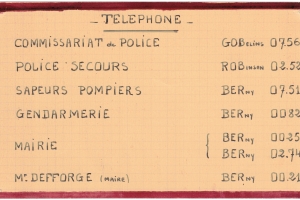 - TELEPHONE -
COMMISSARIAT de POLICE GOBelins 07.56
POLICE SECOURS ROBinson 02.52
SAPEURS POMPIERS BERny 07.51
GENDARMERIE BERny 00.82
MAIRIE { BERny 00.25
BERny 02.74
Mr DEFFORGE (MAIRE) BERny 00.21